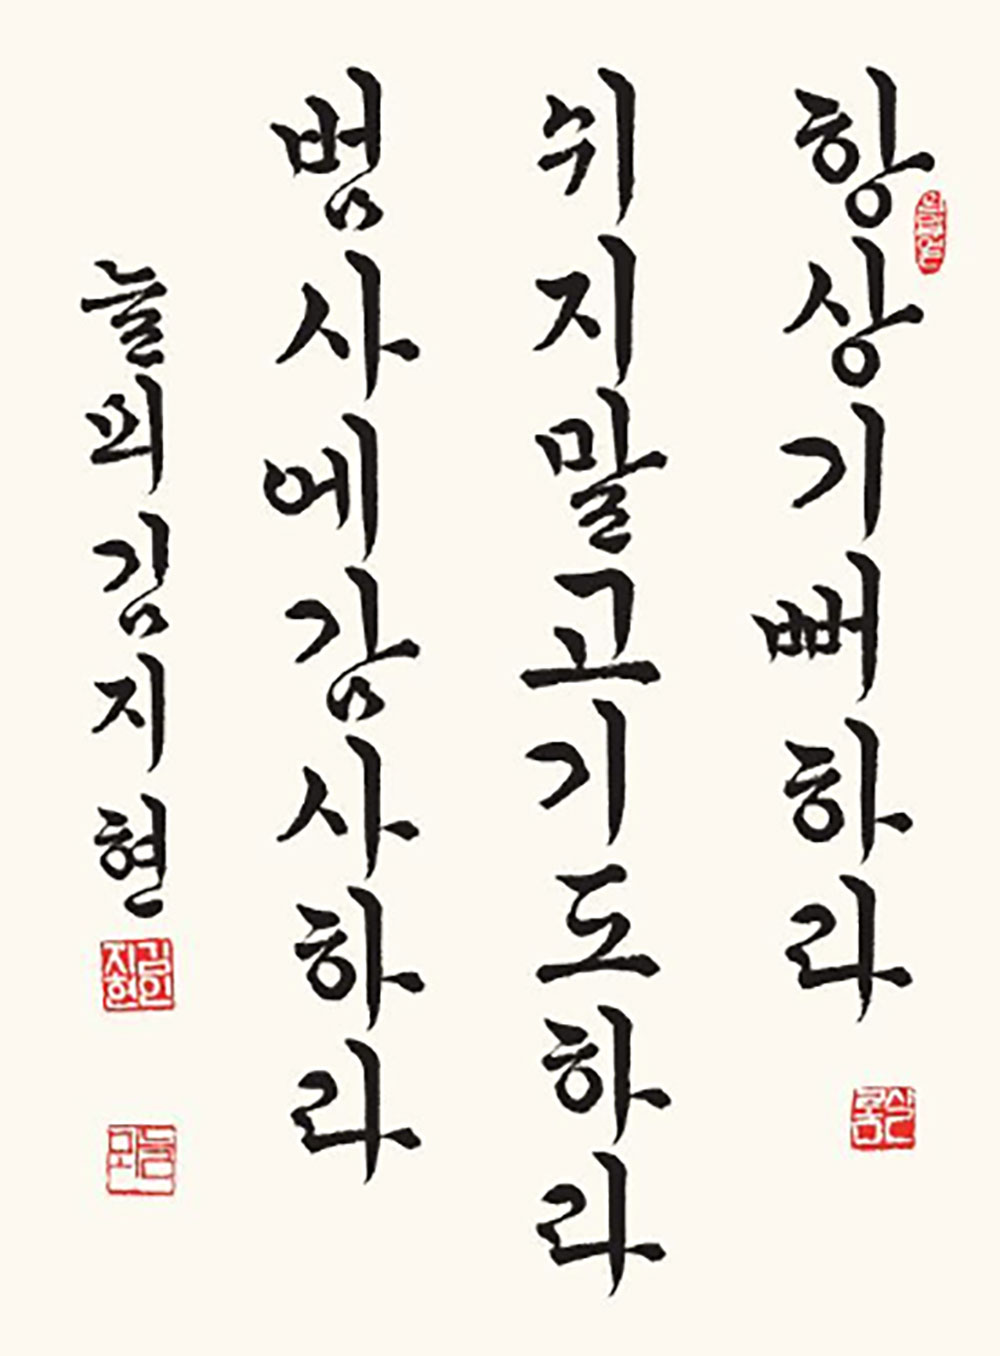 항상기뻐하라
쉬지말고기도하라
범사에감사하라
늘뫼김지현
김인
지현
늘
뫼